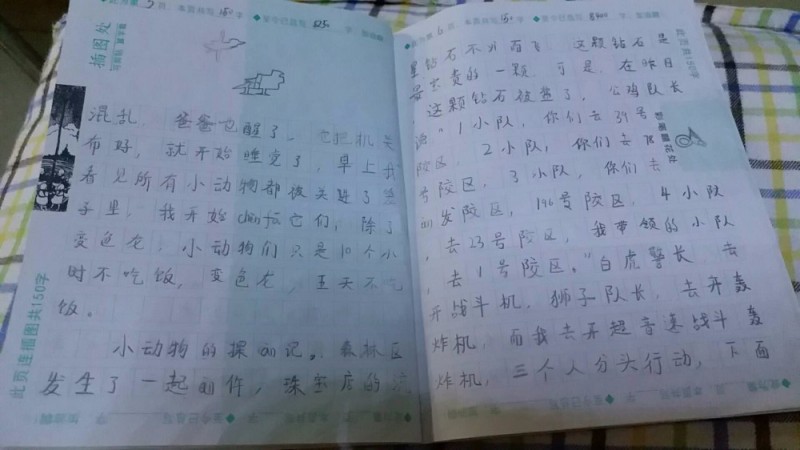 插图处
混乱，爸爸也醒了，它把机关
布好，就开始睡觉了，早上我
看见所有小动物都被关进了
子里，我开始chenfa它们，除了
变色龙，小动物们只是10个小
时不吃饭，变色龙，五天不吃
饭。
小动物的探an记。森林区
发生了一起an件，珠宝店的
此页连插图共150字
星钻石不日而飞，这颗钻石是
最宝贵的一颗，可是，在昨日
这颗钻石被盗了，公鸡队长
说"1小队，你们去39号
陵区，2小队，你们去78
号陵区，3小队，你们去
发陵区，196号陵区，4小队
，去23号陵区，我带领的小队
，去1号陵区。"白虎警长，去
开战斗机，狮子队长，去开轰
炸机，而我去开超音速战斗轰
炸机，三个人分头行动，下面
此页共150字